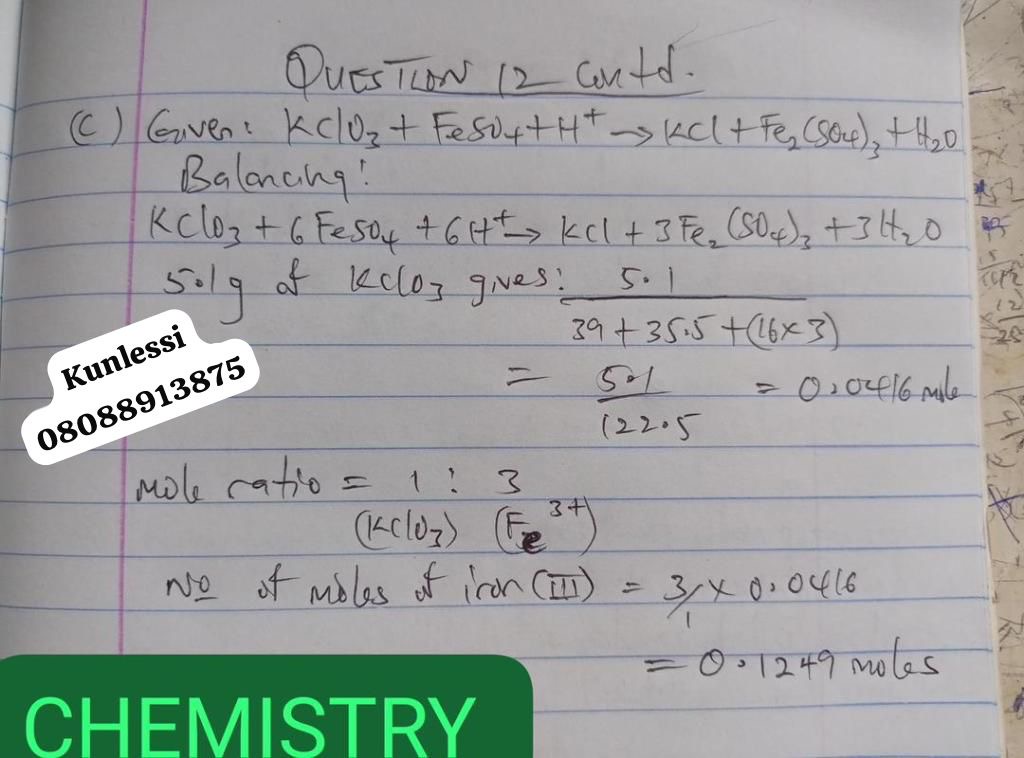 QUESTION 12 Contd.
(C) Given: KClO3 + FeSO4 + H+ → KCl + Fe2(SO4)3 + H2O
Balancing:
KClO3 + 6FeSO4 + 6H+ → KCl + 3Fe2(SO4)3 + 3H2O
5.1g of KClO3 gives: 5.1
39 + 35.5 + (16×3)
= 5.1 = 0.0416 mole
122.5
Kunlessi
08088913875
Mole ratio = 1 : 3
(KClO3) (Fe3+)
No of moles of iron (III) = 3/1 × 0.0416
= 0.1249 moles
CHEMISTRY